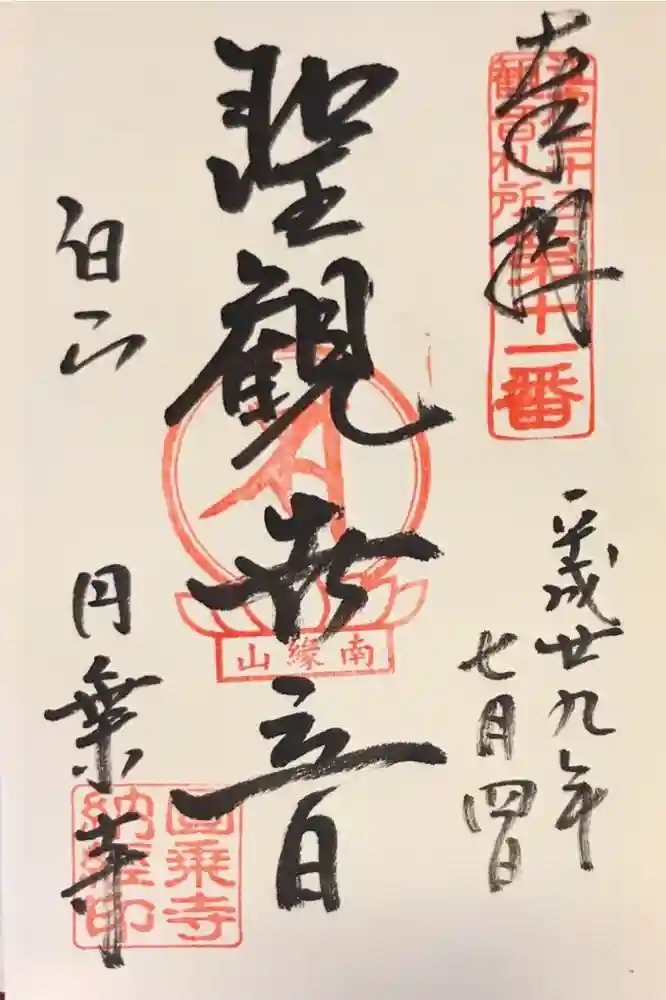 奉拝
江戸三十三
観音札所
第十一番
平成廿九年
七月四日
聖観世音
南縁山
白山
円乗寺
圓乗寺
納経印